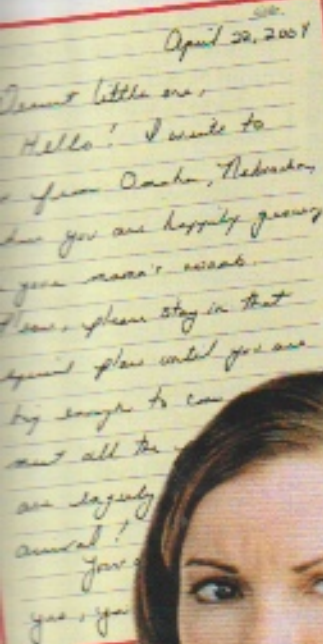 April 22, 2004
Dearest little one,
Hello! I write to
from Omaha, Nebraska,
you are happily growing
your mama's womb.
please stay in that
special place until you are
big enough to come
meet all the
are eagerly
arrival!
You
yes, you